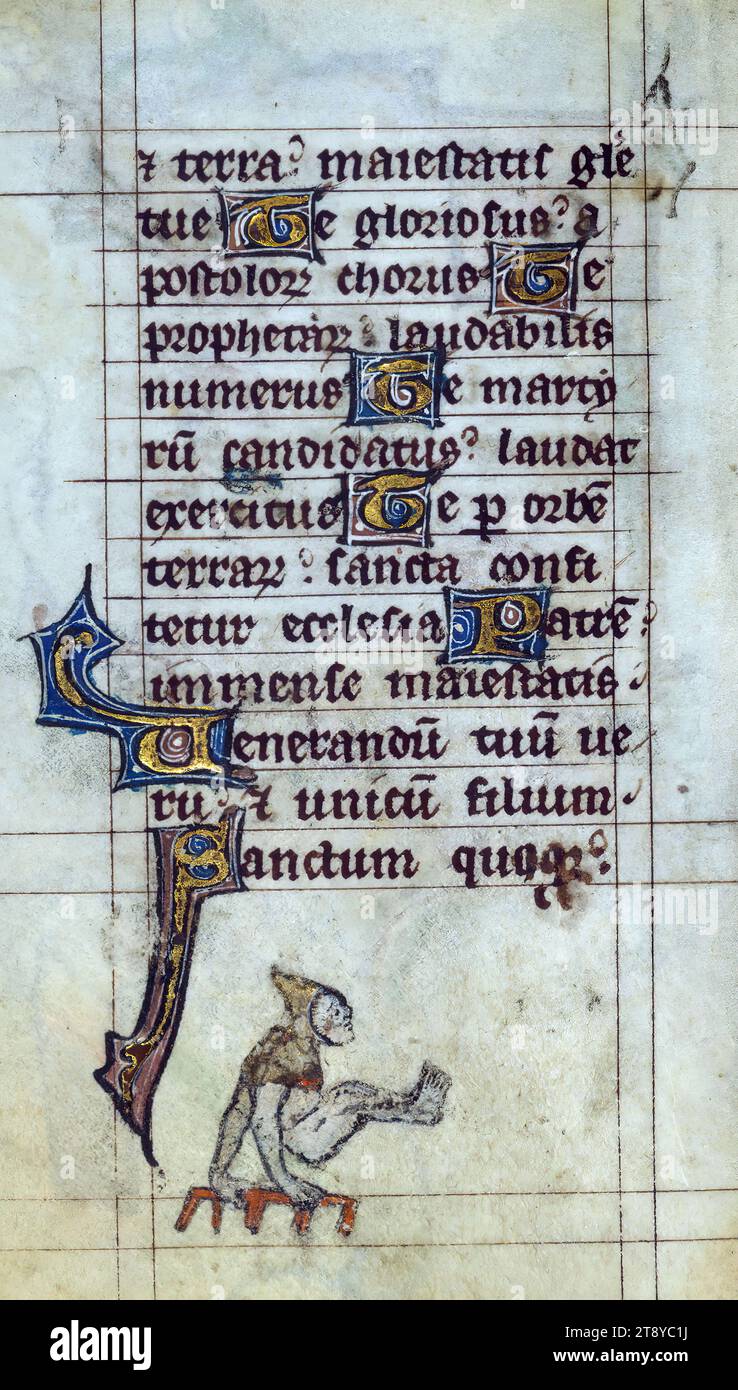 ⁊ terra? maiestatis gl̄e
tue Te gloriosus? a
postoloꝝ chorus Te
prophetaꝝ? laudabilis
numerus Te marty
rū candidatus? laudat
exercitus Te ꝑ orbē
terraꝝ? sancta confi
tetur ecclesia Patrē?
immense maiestatis
Uenerandū tuū ue
rū ⁊ unicū filium
Sanctum quoqꝫ?
alamy
alamy
Image ID: 2T8YC1J
www.alamy.com